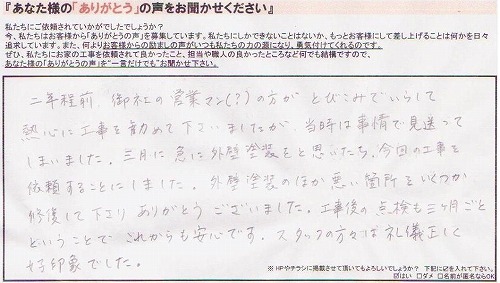 『あなた様の「ありがとう」の声をお聞かせください』
私たちにご依頼されていかがでしたでしょうか？
今、私たちはお客様から「ありがとうの声」を募集しています。私たちにしかできないことはないか、もっとお客様にして差し上げることは何かを日々
追求しています。また、何よりお客様からの励ましの声がいつも私たちの力の源になり、勇気付けてくれるのです。
ぜひ、私たちにお家の工事を依頼されて良かったこと、担当や職人の良かったところなど何でも結構ですので、
あなた様の「ありがとうの声」を“一言だけでも”お聞かせ下さい。
二年程前、御社の営業マン(？)の方がとびこみでいらして
熱心に工事を勧めて下さいましたが、当時は事情で見送って
しまいました。三月に急に外壁塗装をと思いたち、今回の工事を
依頼することにしました。外壁塗装のほか悪い箇所をいくつか
修復して下さりありがとうございました。工事後の点検も三ヶ月ごと
ということでこれからも安心です。スタッフの方々は礼儀正しく
好印象でした。
※HPやチラシに掲載させて頂いてもよろしいでしょうか？ 下記に☑を入れて下さい。
☑はい □ダメ □名前が匿名ならOK